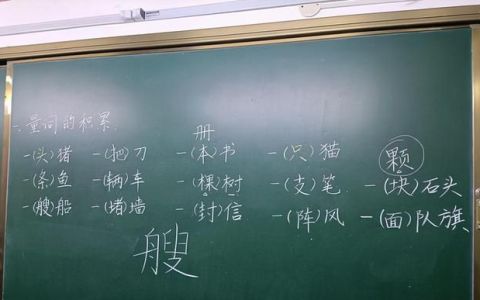 一、量词的积累
册
一(头)猪 一(把)刀 一(本)书 一(只)猫 颗
一(条)鱼 一(辆)车 一(棵)树 一(支)笔 一(块)石头
一(艘)船 一(堵)墙 一(封)信 一(阵)风 一(面)队旗
艘